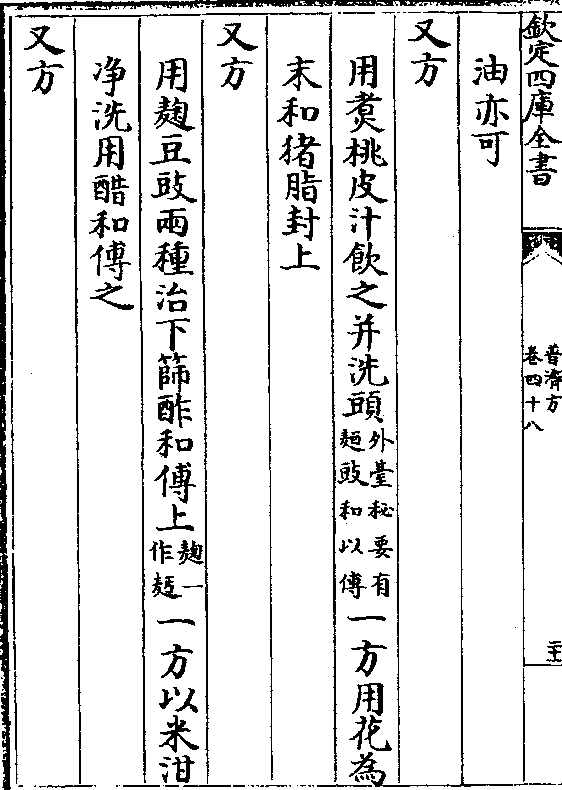 欽定四庫全書
普濟方
卷四十八
油亦可
又方
用煑桃皮汁飲之并洗頭外臺秘要有麺豉和以傅一方用花為
末和猪脂封上
又方
用麹豆豉兩種治下篩酢和傅上麹一作麺一方以米泔
净洗用醋和傅之
又方